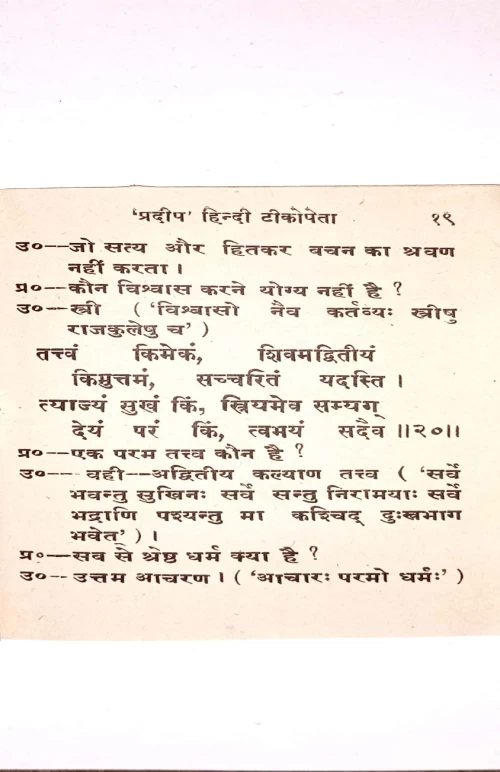 ‘प्रदीप’ हिन्दी टीकोपेता १९
उ०--जो सत्य और हितकर वचन का श्रवण
नहीं करता ।
प्र०--कौन विश्वास करने योग्य नहीं है ?
उ०--स्त्री ( ‘विश्वासो नैव कर्तव्यः स्त्रीषु
राजकुलेषु च’ )
तत्त्वं किमेकं, शिवमद्वितीयं
किमुत्तमं, सच्चरितं यदस्ति ।
त्याज्यं सुखं किं, स्त्रियमेव सम्यग्
देयं परं किं, त्वभयं सदैव ॥२०॥
प्र०--एक परम तत्त्व कौन है ?
उ०-- वही--अद्वितीय कल्याण तत्त्व ( ‘सर्वे
भवन्तु सुखिनः सर्वे सन्तु निरामयाः सर्वे
भद्राणि पश्यन्तु मा कश्चिद् दुःखभाग
भवेत्’ ) ।
प्र०--सब से श्रेष्ठ धर्म क्या है ?
उ०-- उत्तम आचरण । ( ‘आचारः परमो धर्मः’ )